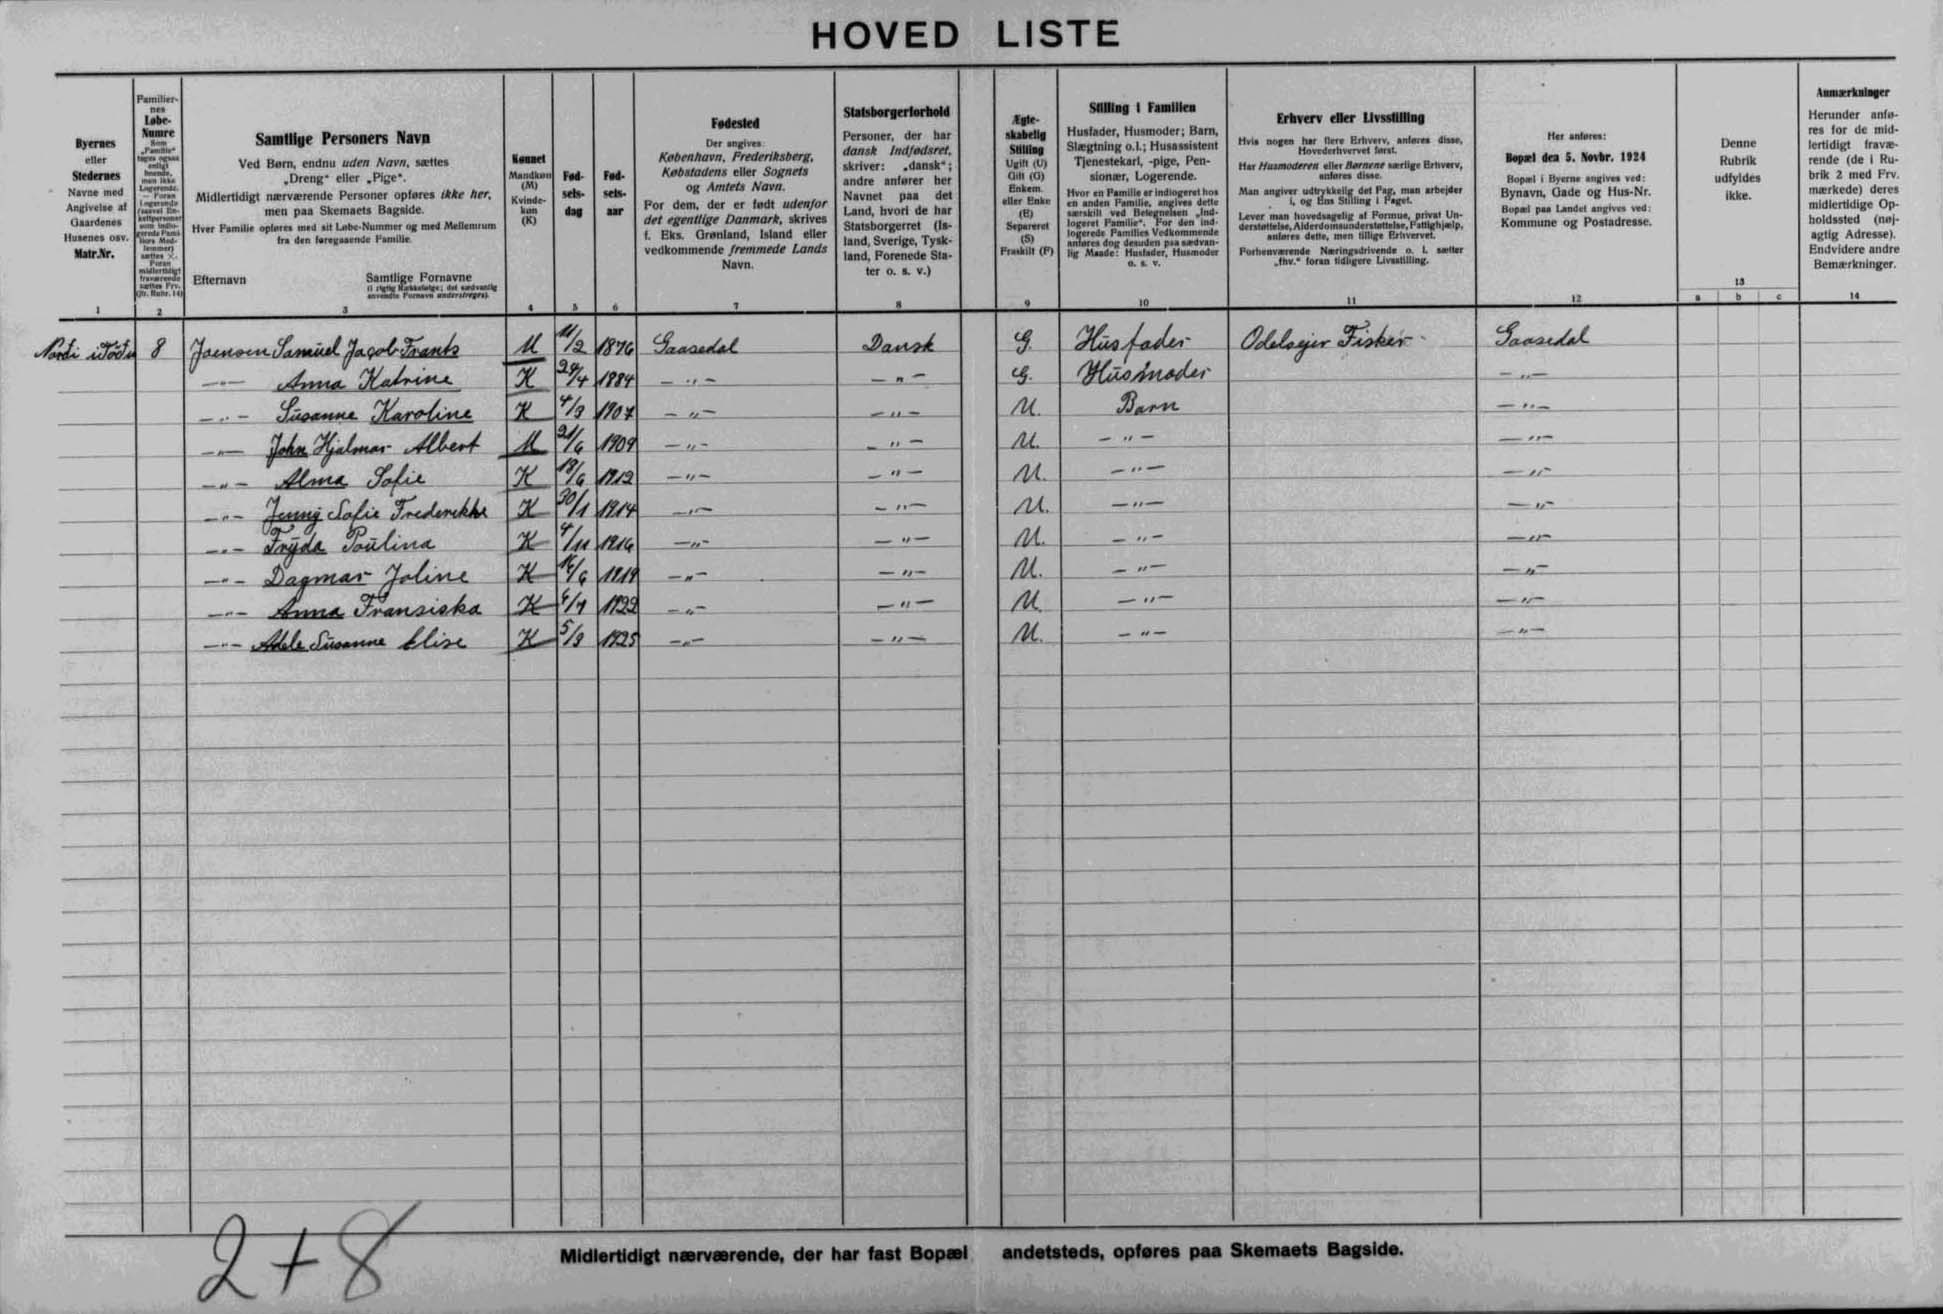 HOVED LISTE
Byernes
eller
Stedernes
Navne med
Angivelse af
Gaardenes
Husenes osv.
Matr.Nr.
1
Familier-
nes
Løbe-
Numre
Som
„Familie“
tages ogsaa
enligt
boende,
men ikke
Logerende.
— Foran
Logerende
(saavel En-
keltpersoner
som indlo-
gerede Fami-
liers Med-
lemmer)
sættes ×.
Foran
midlertidigt
fraværende
sættes Frv.
(jfr. Rubr. 14)
2
Samtlige Personers Navn
Ved Børn, endnu uden Navn, sættes
„Dreng“ eller „Pige“.
Midlertidigt nærværende Personer opføres ikke her,
men paa Skemaets Bagside.
Hver Familie opføres med sit Løbe-Nummer og med Mellemrum
fra den foregaaende Familie.
Efternavn
Samtlige Fornavne
(i rigtig Rækkefølge; det sædvanlig
anvendte Fornavn understreges).
3
Kønnet
Mandkøn
(M)
Kvinde-
køn
(K)
4
Fød-
sels-
dag
5
Fød-
sels-
aar
6
Fødested
Der angives:
København, Frederiksberg,
Købstadens eller Sognets
og Amtets Navn.
For dem, der er født udenfor
det egentlige Danmark, skrives
f. Eks. Grønland, Island eller
vedkommende fremmede Lands
Navn.
7
Statsborgerforhold
Personer, der har
dansk Indfødsret,
skriver: „dansk“;
andre anfører her
Navnet paa det
Land, hvori de har
Statsborgerret (Is-
land, Sverige, Tysk-
land, Forenede Sta-
ter o. s. v.)
8
Ægte-
skabelig
Stilling
Ugift (U)
Gift (G)
Enkem.
eller Enke
(E)
Separeret
(S)
Fraskilt (F)
9
Stilling i Familien
Husfader, Husmoder; Barn,
Slægtning o.l.; Husassistent
Tjenestekarl, -pige, Pen-
sionær, Logerende.
Hvor en Familie er indlogeret hos
en anden Familie, angives dette
særskilt ved Betegnelsen „Ind-
logeret Familie“. For den ind-
logerede Families Vedkommende
anføres dog desuden paa sædvan-
lig Maade: Husfader, Husmoder
o. s. v.
10
Erhverv eller Livsstilling
Hvis nogen har flere Erhverv, anføres disse,
Hovederhvervet først.
Har Husmoderen eller Børnene særlige Erhverv,
anføres disse.
Man angiver udtrykkelig det Fag, man arbejder
i, og Ens Stilling i Faget.
Lever man hovedsagelig af Formue, privat Un-
derstøttelse, Alderdomsunderstøttelse, Fattighjælp,
anføres dette, men tillige Erhvervet.
Forhenværende Næringsdrivende o. l. sætter
„fhv.“ foran tidligere Livsstilling.
11
Her anføres:
Bopæl den 5. Novbr. 1924
Bopæl i Byerne angives ved:
Bynavn, Gade og Hus-Nr.
Bopæl paa Landet angives ved:
Kommune og Postadresse.
12
Denne
Rubrik
udfyldes
ikke.
13
a b c
Anmærkninger
Herunder anfø-
res for de mid-
lertidigt fravæ-
rende (de i Ru-
brik 2 med Frv.
mærkede) deres
midlertidige Op-
holdssted (nøj-
agtig Adresse).
Endvidere andre
Bemærkninger.
14
8 Joensen Samuel Jacob Frants M 11/2 1876 Gaasedal Dansk G. Husfader Odelsejer Fisker Gaasedal
—"— Anna Katrine K 29/4 1884 —"— —"— G. Husmoder —"—
—"— Susanne Karoline K 4/3 1907 —"— —"— U. Barn —"—
—"— John Hjalmar Albert M 21/6 1909 —"— —"— U. —"— —"—
—"— Alma Sofie K 18/6 1912 —"— —"— U. —"— —"—
—"— Jenny Sofie Frederikke K 30/1 1914 —"— —"— U. —"— —"—
—"— Fryda Poulina K 4/11 1916 —"— —"— U. —"— —"—
—"— Dagmar Joline K 16/6 1919 —"— —"— U. —"— —"—
—"— Anna Fransiska K 1922 —"— —"— U. —"— —"—
—"— Adele Susanne Elise K 5/3 1925 —"— —"— U. —"— —"—
2+8
Midlertidigt nærværende, der har fast Bopæl andetsteds, opføres paa Skemaets Bagside.